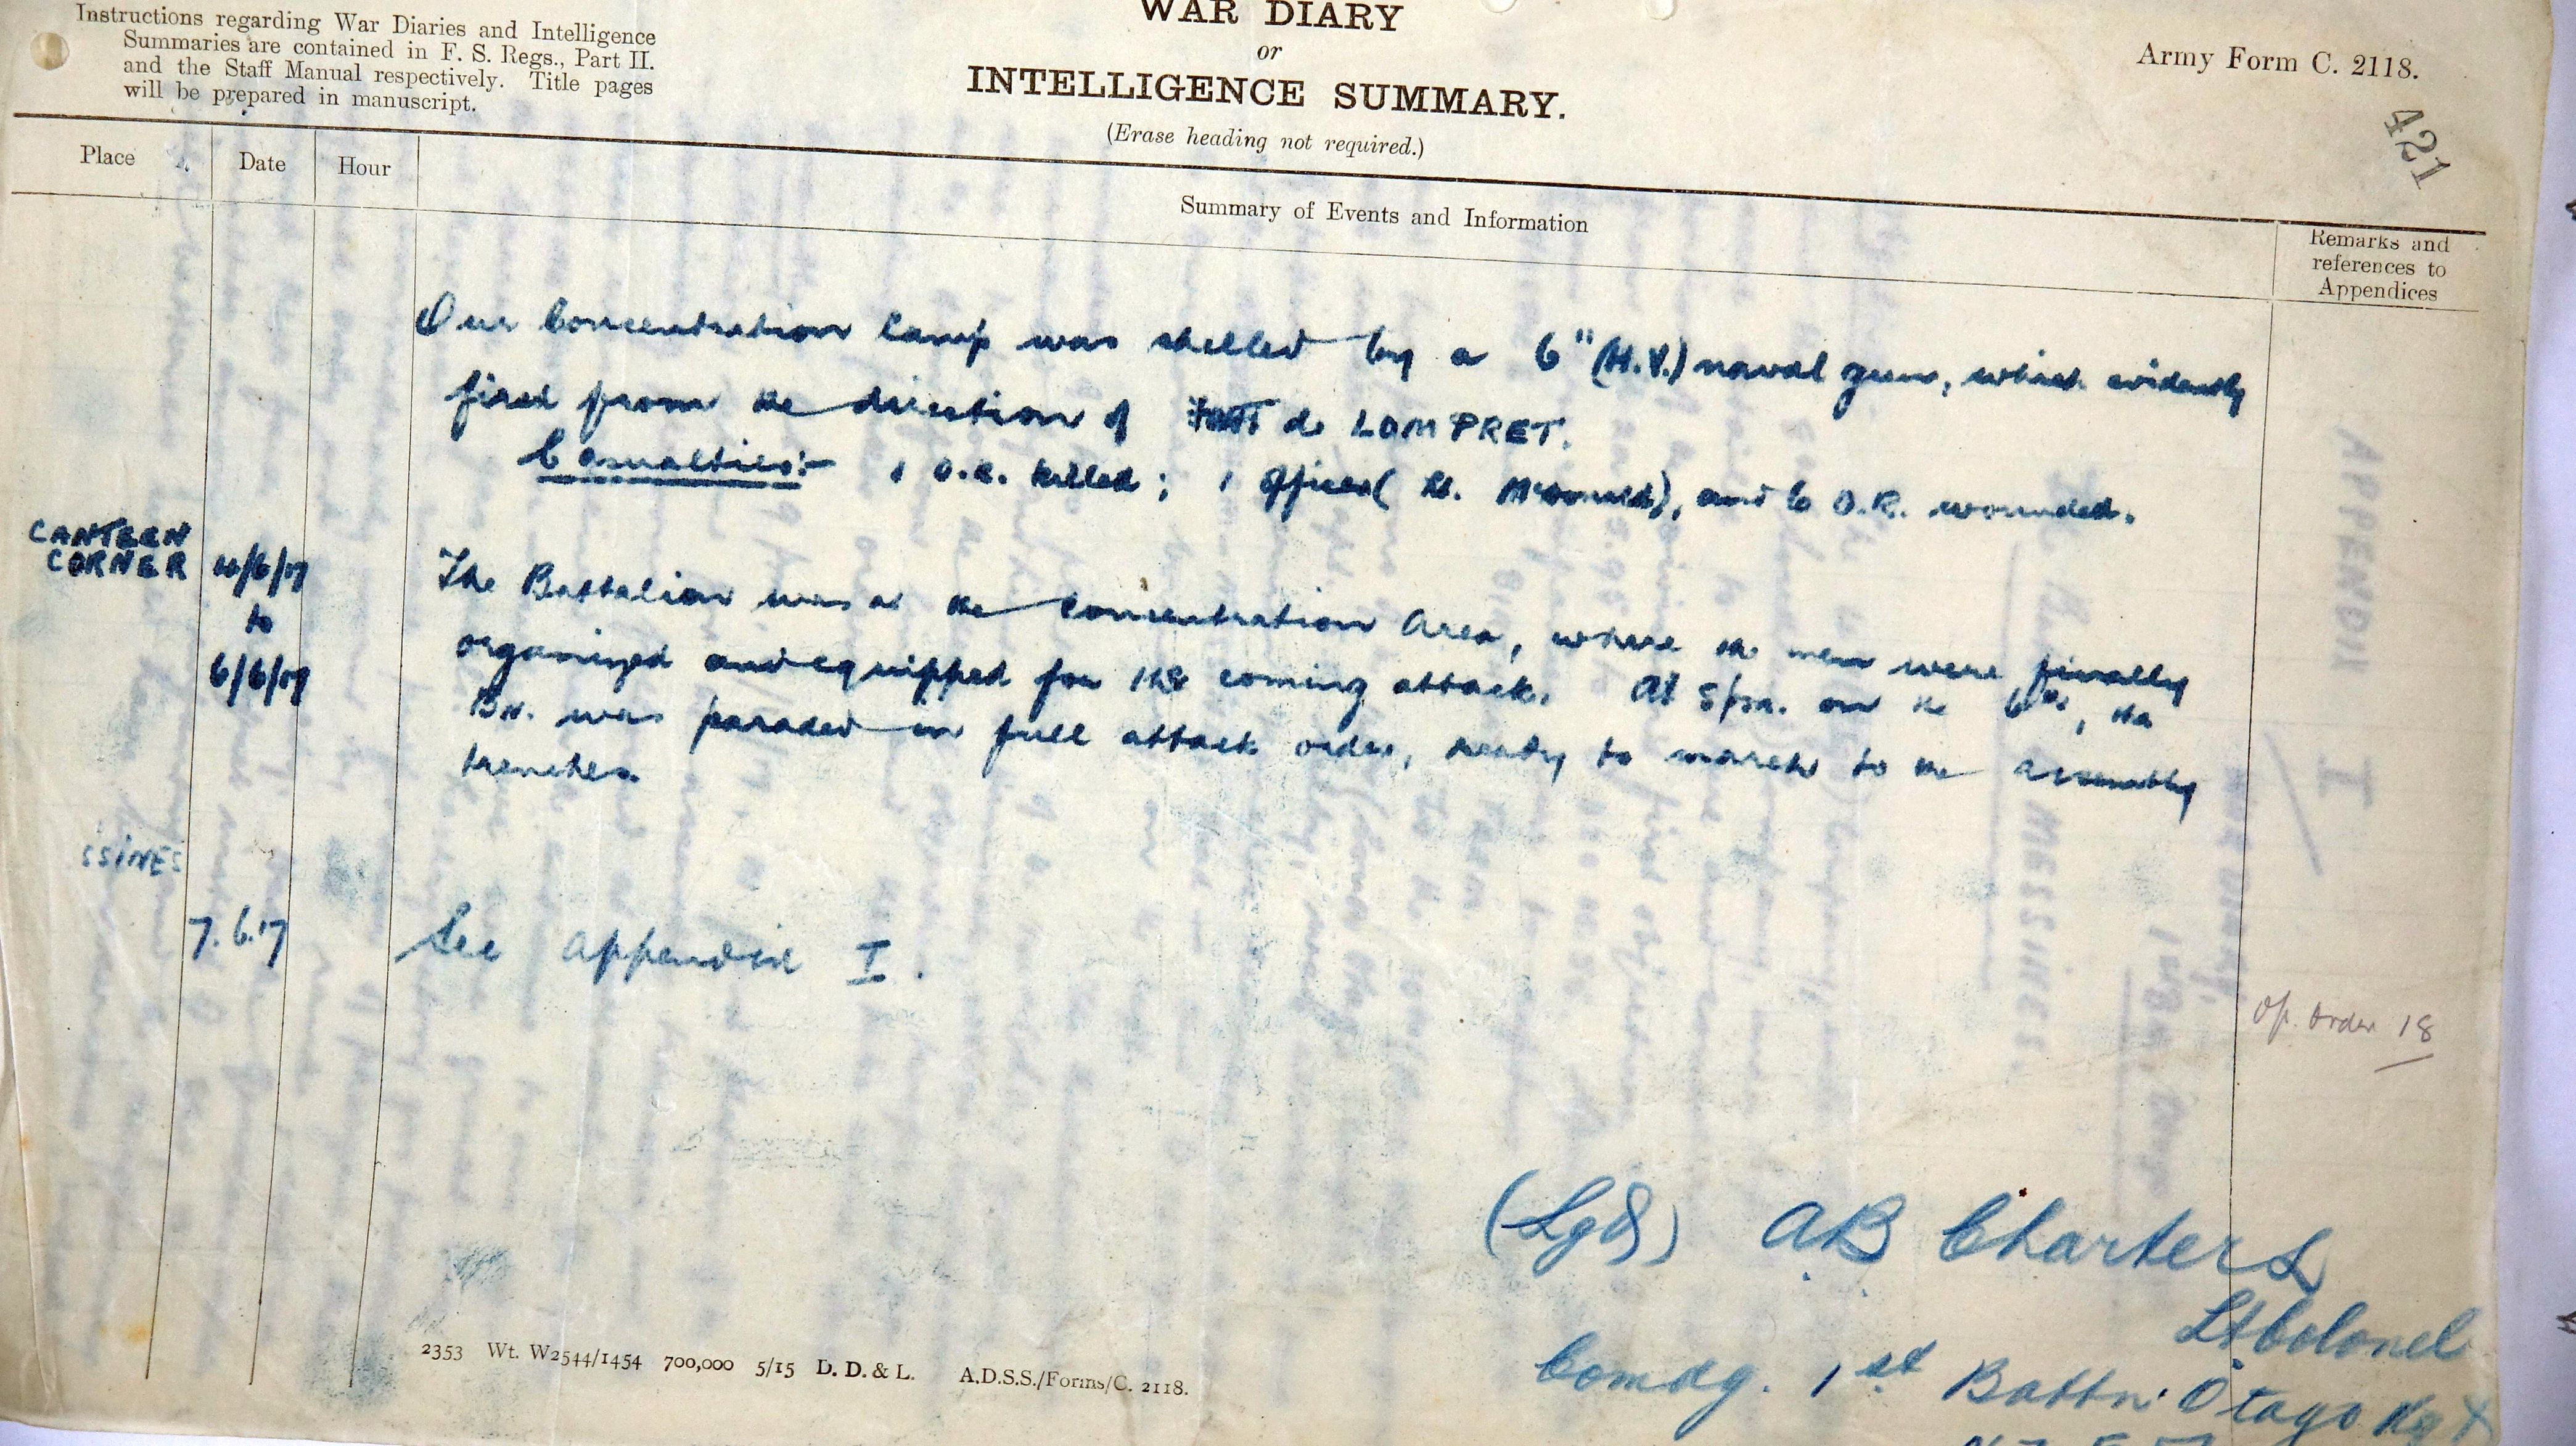 Instructions regarding War Diaries and Intelligence
Summaries are contained in F. S. Regs., Part II.
and the Staff Manual respectively. Title pages
will be prepared in manuscript.
WAR DIARY
or
INTELLIGENCE SUMMARY.
(Erase heading not required.)
Army Form C. 2118.
421
Place Date Hour
Summary of Events and Information
Remarks and
references to
Appendices
Our Concentration Camp was shelled by a 6" (H.V.) naval gun, which evidently
fired from the direction of de LOMPRET.
Casualties:- 1 O.R. killed; 1 Officer (Lt. McDonald), and 6 O.R. wounded.
CANTEEN
CORNER
4/6/17
to
6/6/17
The Battalion was at the Concentration Area, where the men were finally
organized and equipped for the coming attack. At 8 p.m. on the 6th, the
Bn. was paraded in full attack order, ready to march to the assembly
trenches.
SSINES
7.6.17
See Appendix I.
Op. Order 18
(Sgd) AB Charters
Lt Colonel
Comdg. 1st Battn. Otago Regt
2353 Wt. W2544/1454 700,000 5/15 D. D. & L. A.D.S.S./Forms/C. 2118.